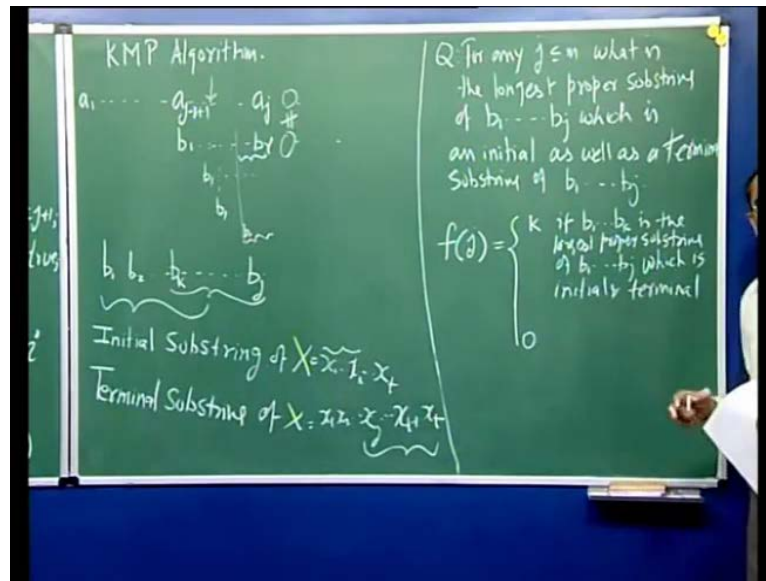 KMP Algorithm.
a₁ ..... a_{j-r+1} . a_j
b₁ ..... b_r
b₁ .....
b₁
b₁ b₂ b_k ..... b_j
Initial Substring of X = x₁ . x₂ . x_t
Terminal Substring of X = x₁ x₂ . x_j .. x_{t-1} x_t
Q. For any j ≤ n what is
the longest proper substring
of b₁ .... b_j which is
an initial as well as a Termin
substring of b₁ ... b_j.
f(j) = { K if b₁ .. b_k is the
longest proper substring
of b₁ ... b_j which is
initial & terminal
0